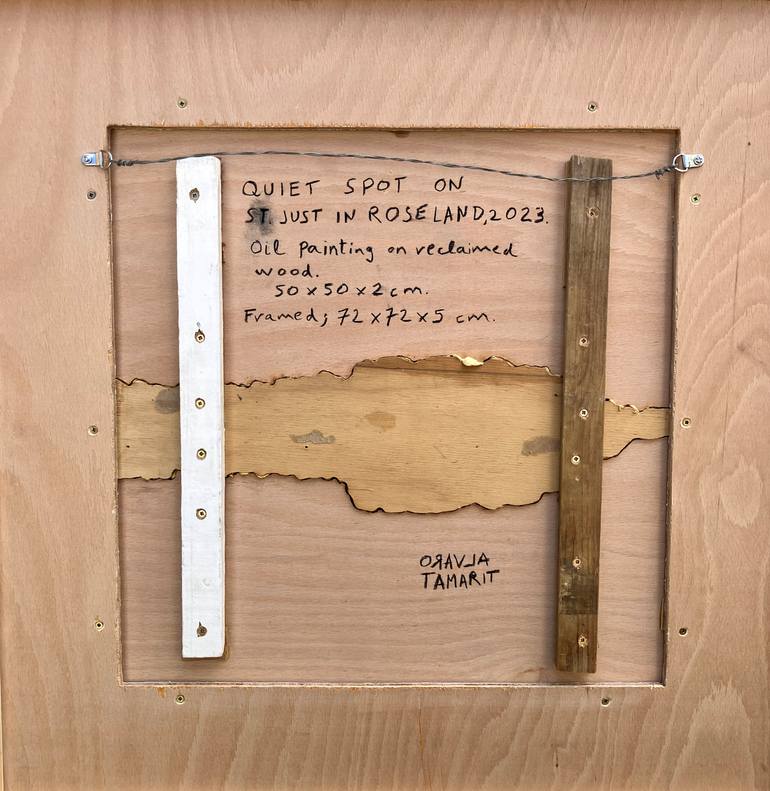 QUIET SPOT ON
ST. JUST IN ROSELAND, 2023.
Oil painting on reclaimed
wood.
50 x 50 x 2 cm.
Framed; 72 x 72 x 5 cm.
ORAVLA
TAMARIT